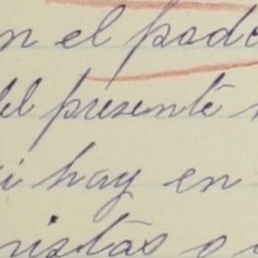 en el pode
del presente
i hay en
nistas o